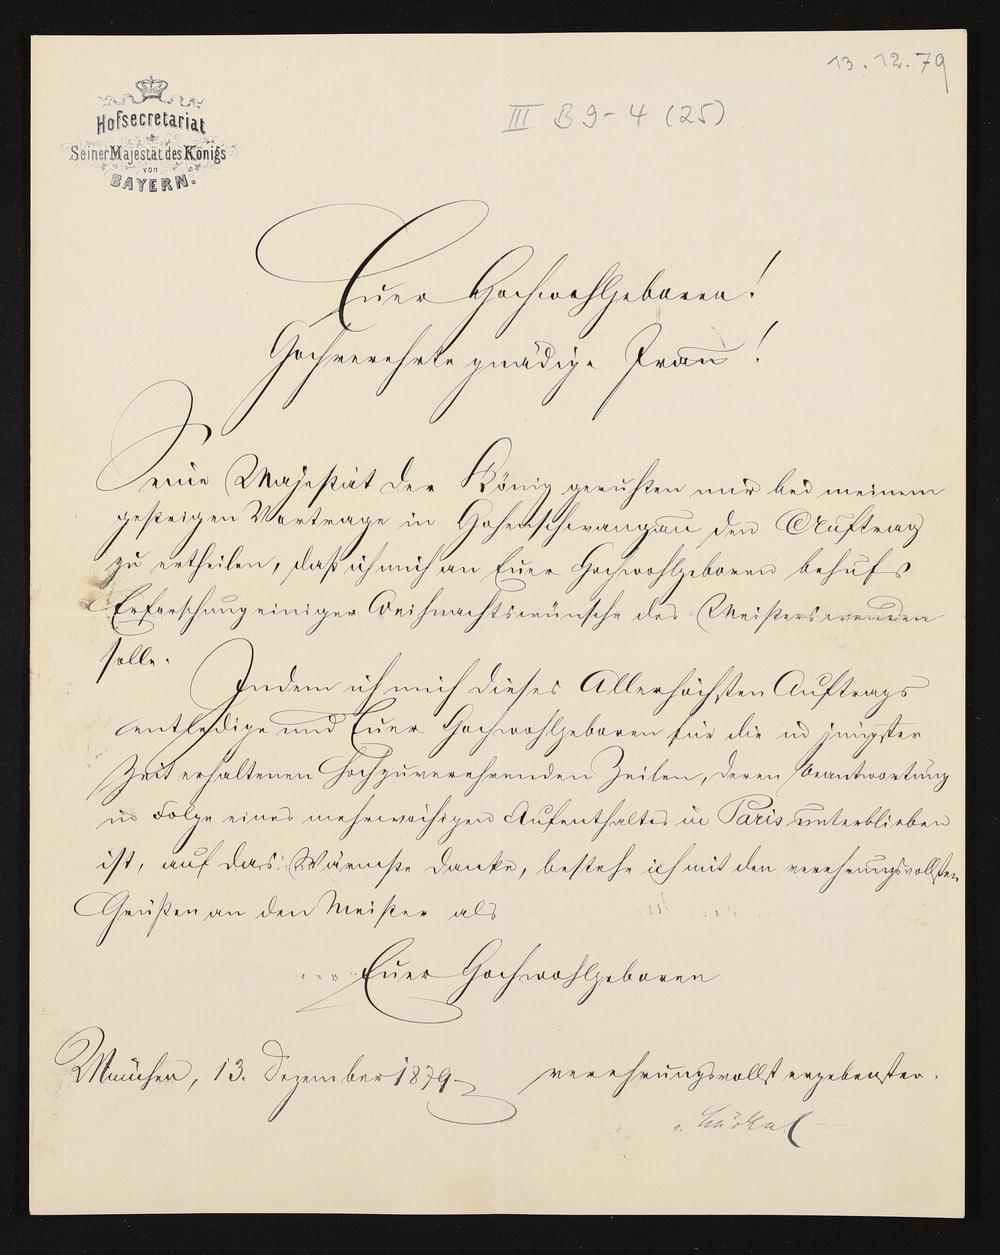 13.12.79
III B 9-4 (25)
Hofsecretariat
Seiner Majestät des Königs
von
BAYERN.
Euer Hochwohlgeboren!
Hochverehrte gnädige Frau!
Seine Majestät der König geruhten mir bei meinem
gestrigen Vortrage in Hohenschwangau den Auftrag
zu ertheilen, daß ich mich an Euer Hochwohlgeboren behufs
Erforschung einiger Weihnachtswünsche des Meisters wenden
solle.
Indem ich mich dieses Allerhöchsten Auftrags
entledige und Euer Hochwohlgeboren für die in jüngster
Zeit erhaltenen hochzuverehrenden Zeilen, deren Beantwortung
in Folge eines mehrwöchigen Aufenthaltes in Paris unterblieben
ist, auf das Wärmste danke, bestehe ich mit den verehrungsvollsten
Grüßen an den Meister als
Euer Hochwohlgeboren
München, 13. Dezember 1879
verehrungsvollst ergebenster.
v. Bürkel